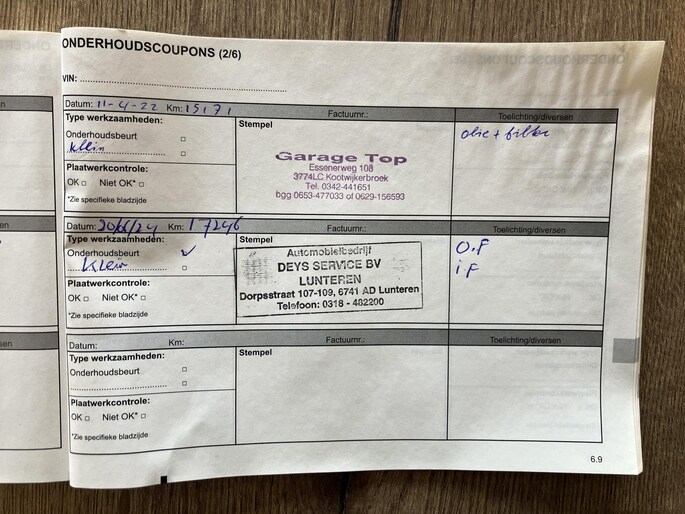 ONDERHOUDSCOUPONS (2/6)
VIN:
Datum: 11-4-22 Km: 15171 Factuurnr.: Toelichting/diversen
Type werkzaamheden:
Onderhoudsbeurt
klein
Plaatwerkcontrole:
OK Niet OK*
*Zie specifieke bladzijde
Stempel
Garage Top
Essenerweg 108
3774LC Kootwijkerbroek
Tel. 0342-441651
bgg 0653-477033 of 0629-156593
olie + filter
Datum: 20/6/24 Km: 17246 Factuurnr.: Toelichting/diversen
Type werkzaamheden:
Onderhoudsbeurt
Klein
Plaatwerkcontrole:
OK Niet OK*
*Zie specifieke bladzijde
Stempel
Automobielbedrijf
DEYS SERVICE BV
LUNTEREN
Dorpsstraat 107-109, 6741 AD Lunteren
Telefoon: 0318 - 482200
O.F
i.F
Datum: Km: Factuurnr.: Toelichting/diversen
Type werkzaamheden:
Onderhoudsbeurt
Plaatwerkcontrole:
OK Niet OK*
*Zie specifieke bladzijde
Stempel
6.9